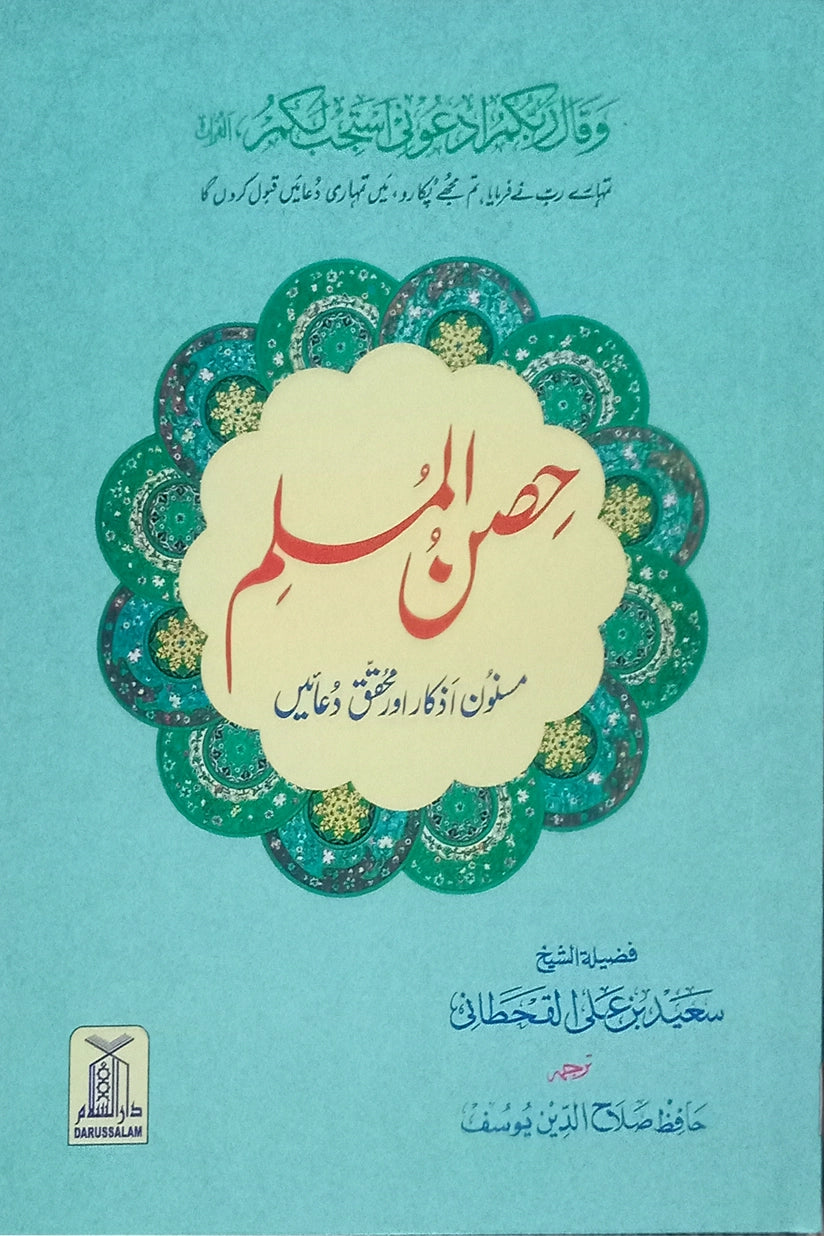 وَقَالَ رَبُّكُمُ ادْعُوْنِیْٓ اَسْتَجِبْ لَكُمْ، القرآن
تمہارے ربّ نے فرمایا، تم مجھے پکارو، میں تمہاری دُعائیں قبول کروں گا
حِصنُ المُسلِم
مسنُون اَذکار اور محُقّق دُعائیں
فضیلۃ الشیخ
سَعِیْد بن عَلی القحطانی
ترجمہ
حَافِظ صَلاحُ الدِّین یُوسُف
دارالسلام
DARUSSALAM